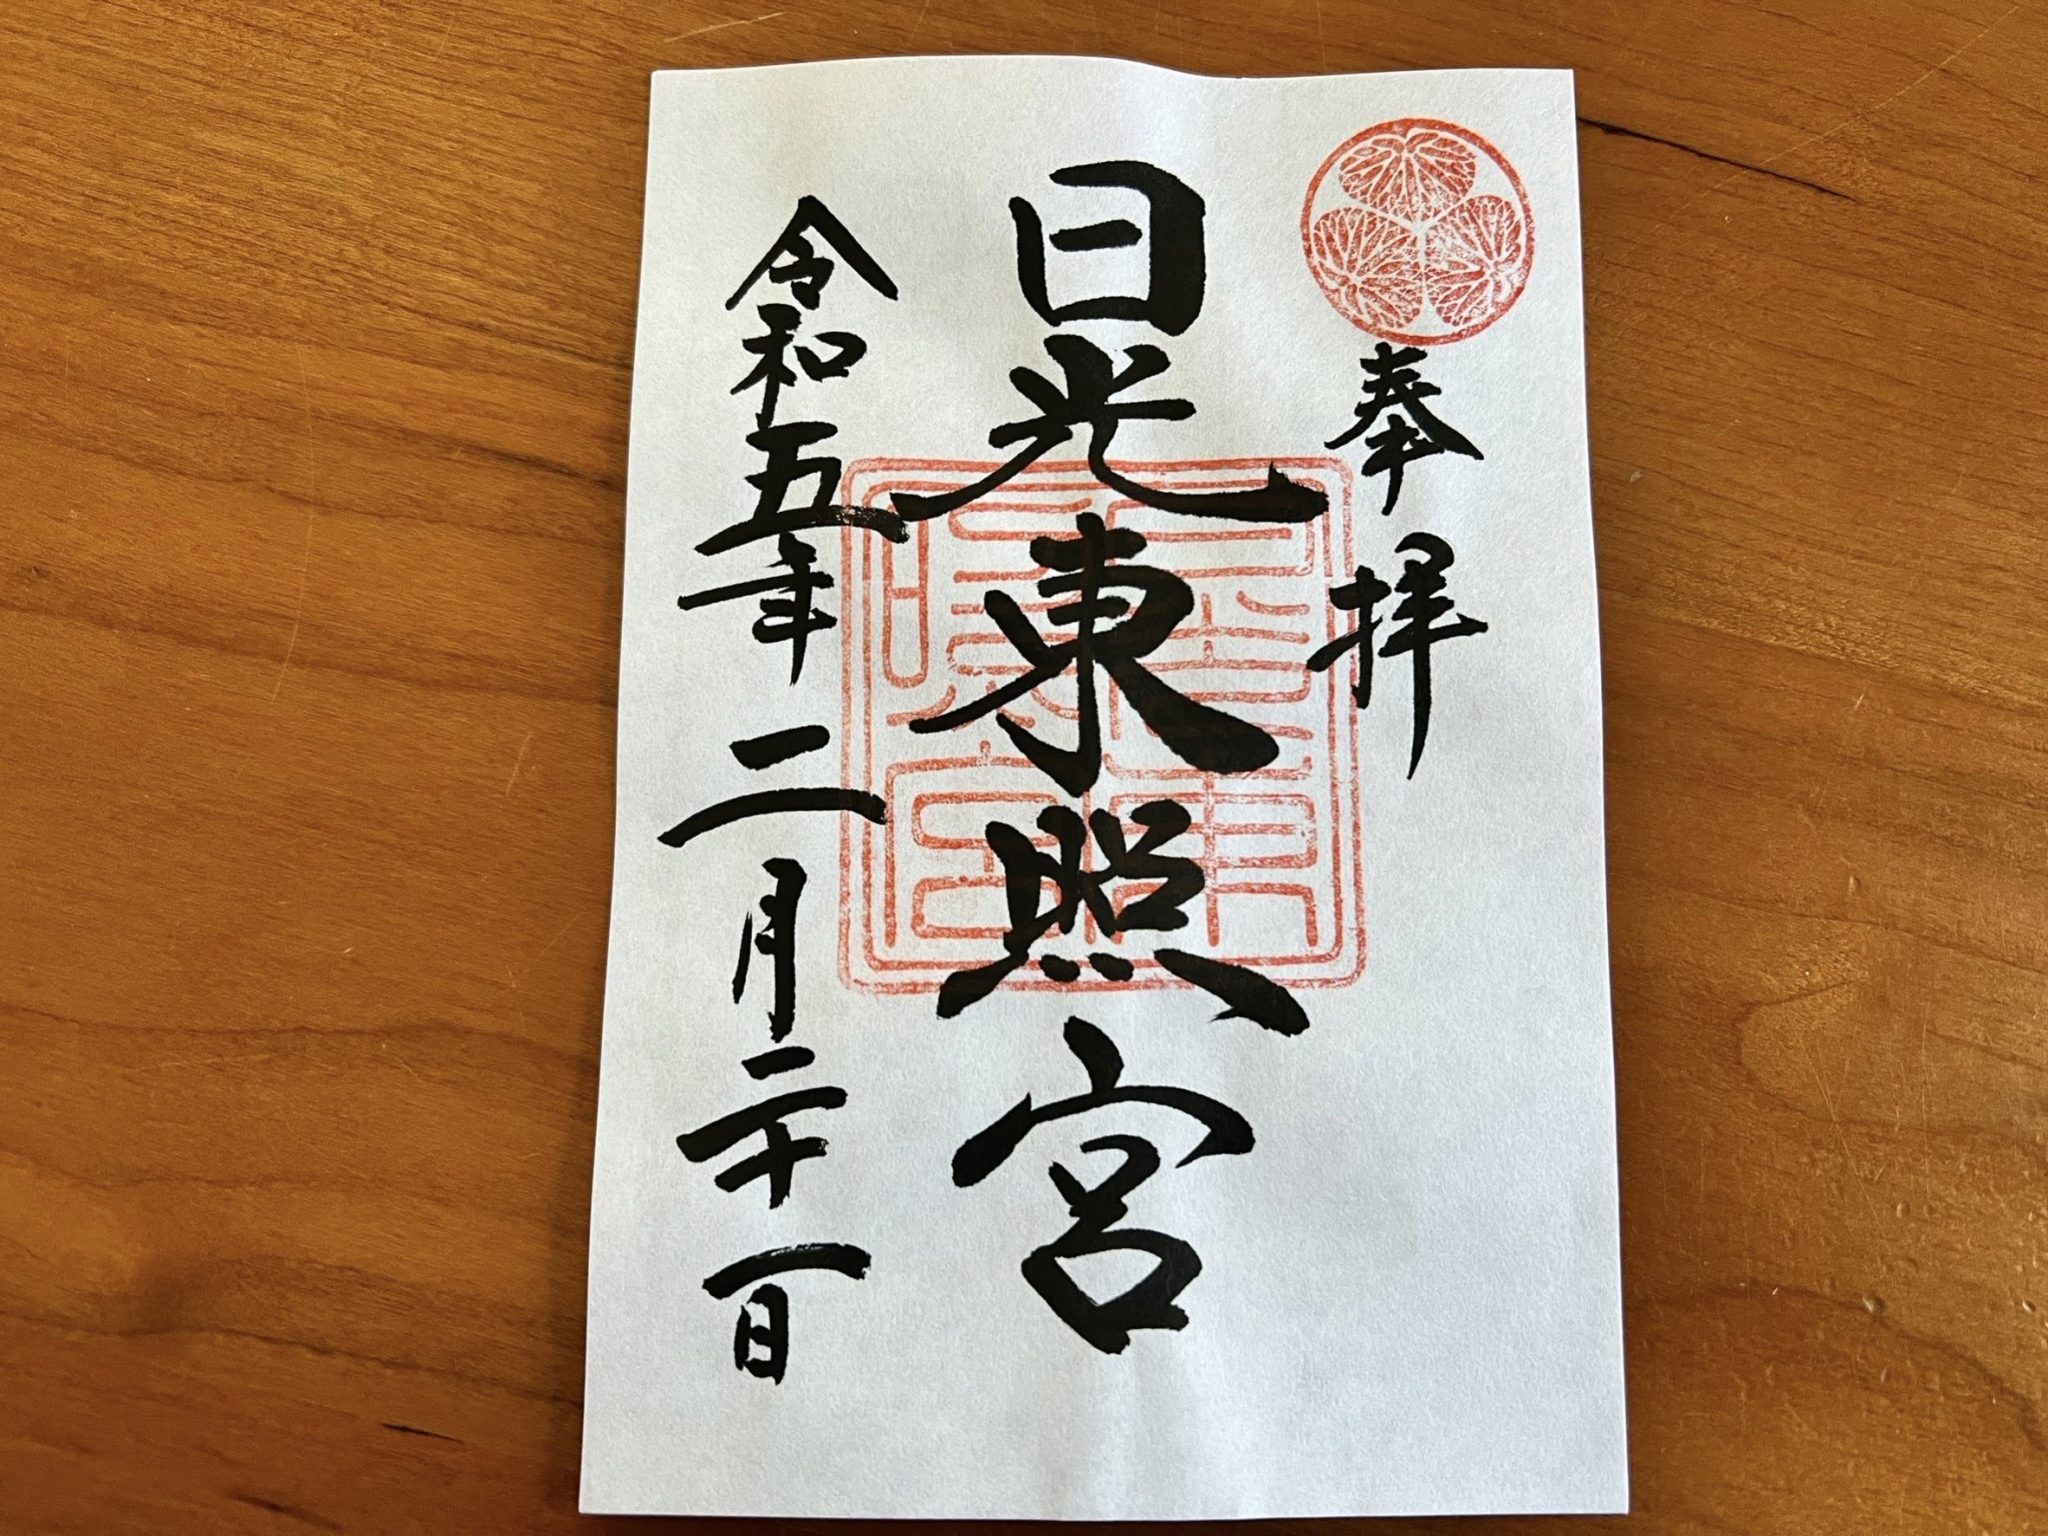 奉拝
日光東照宮
令和五年二月二十一日